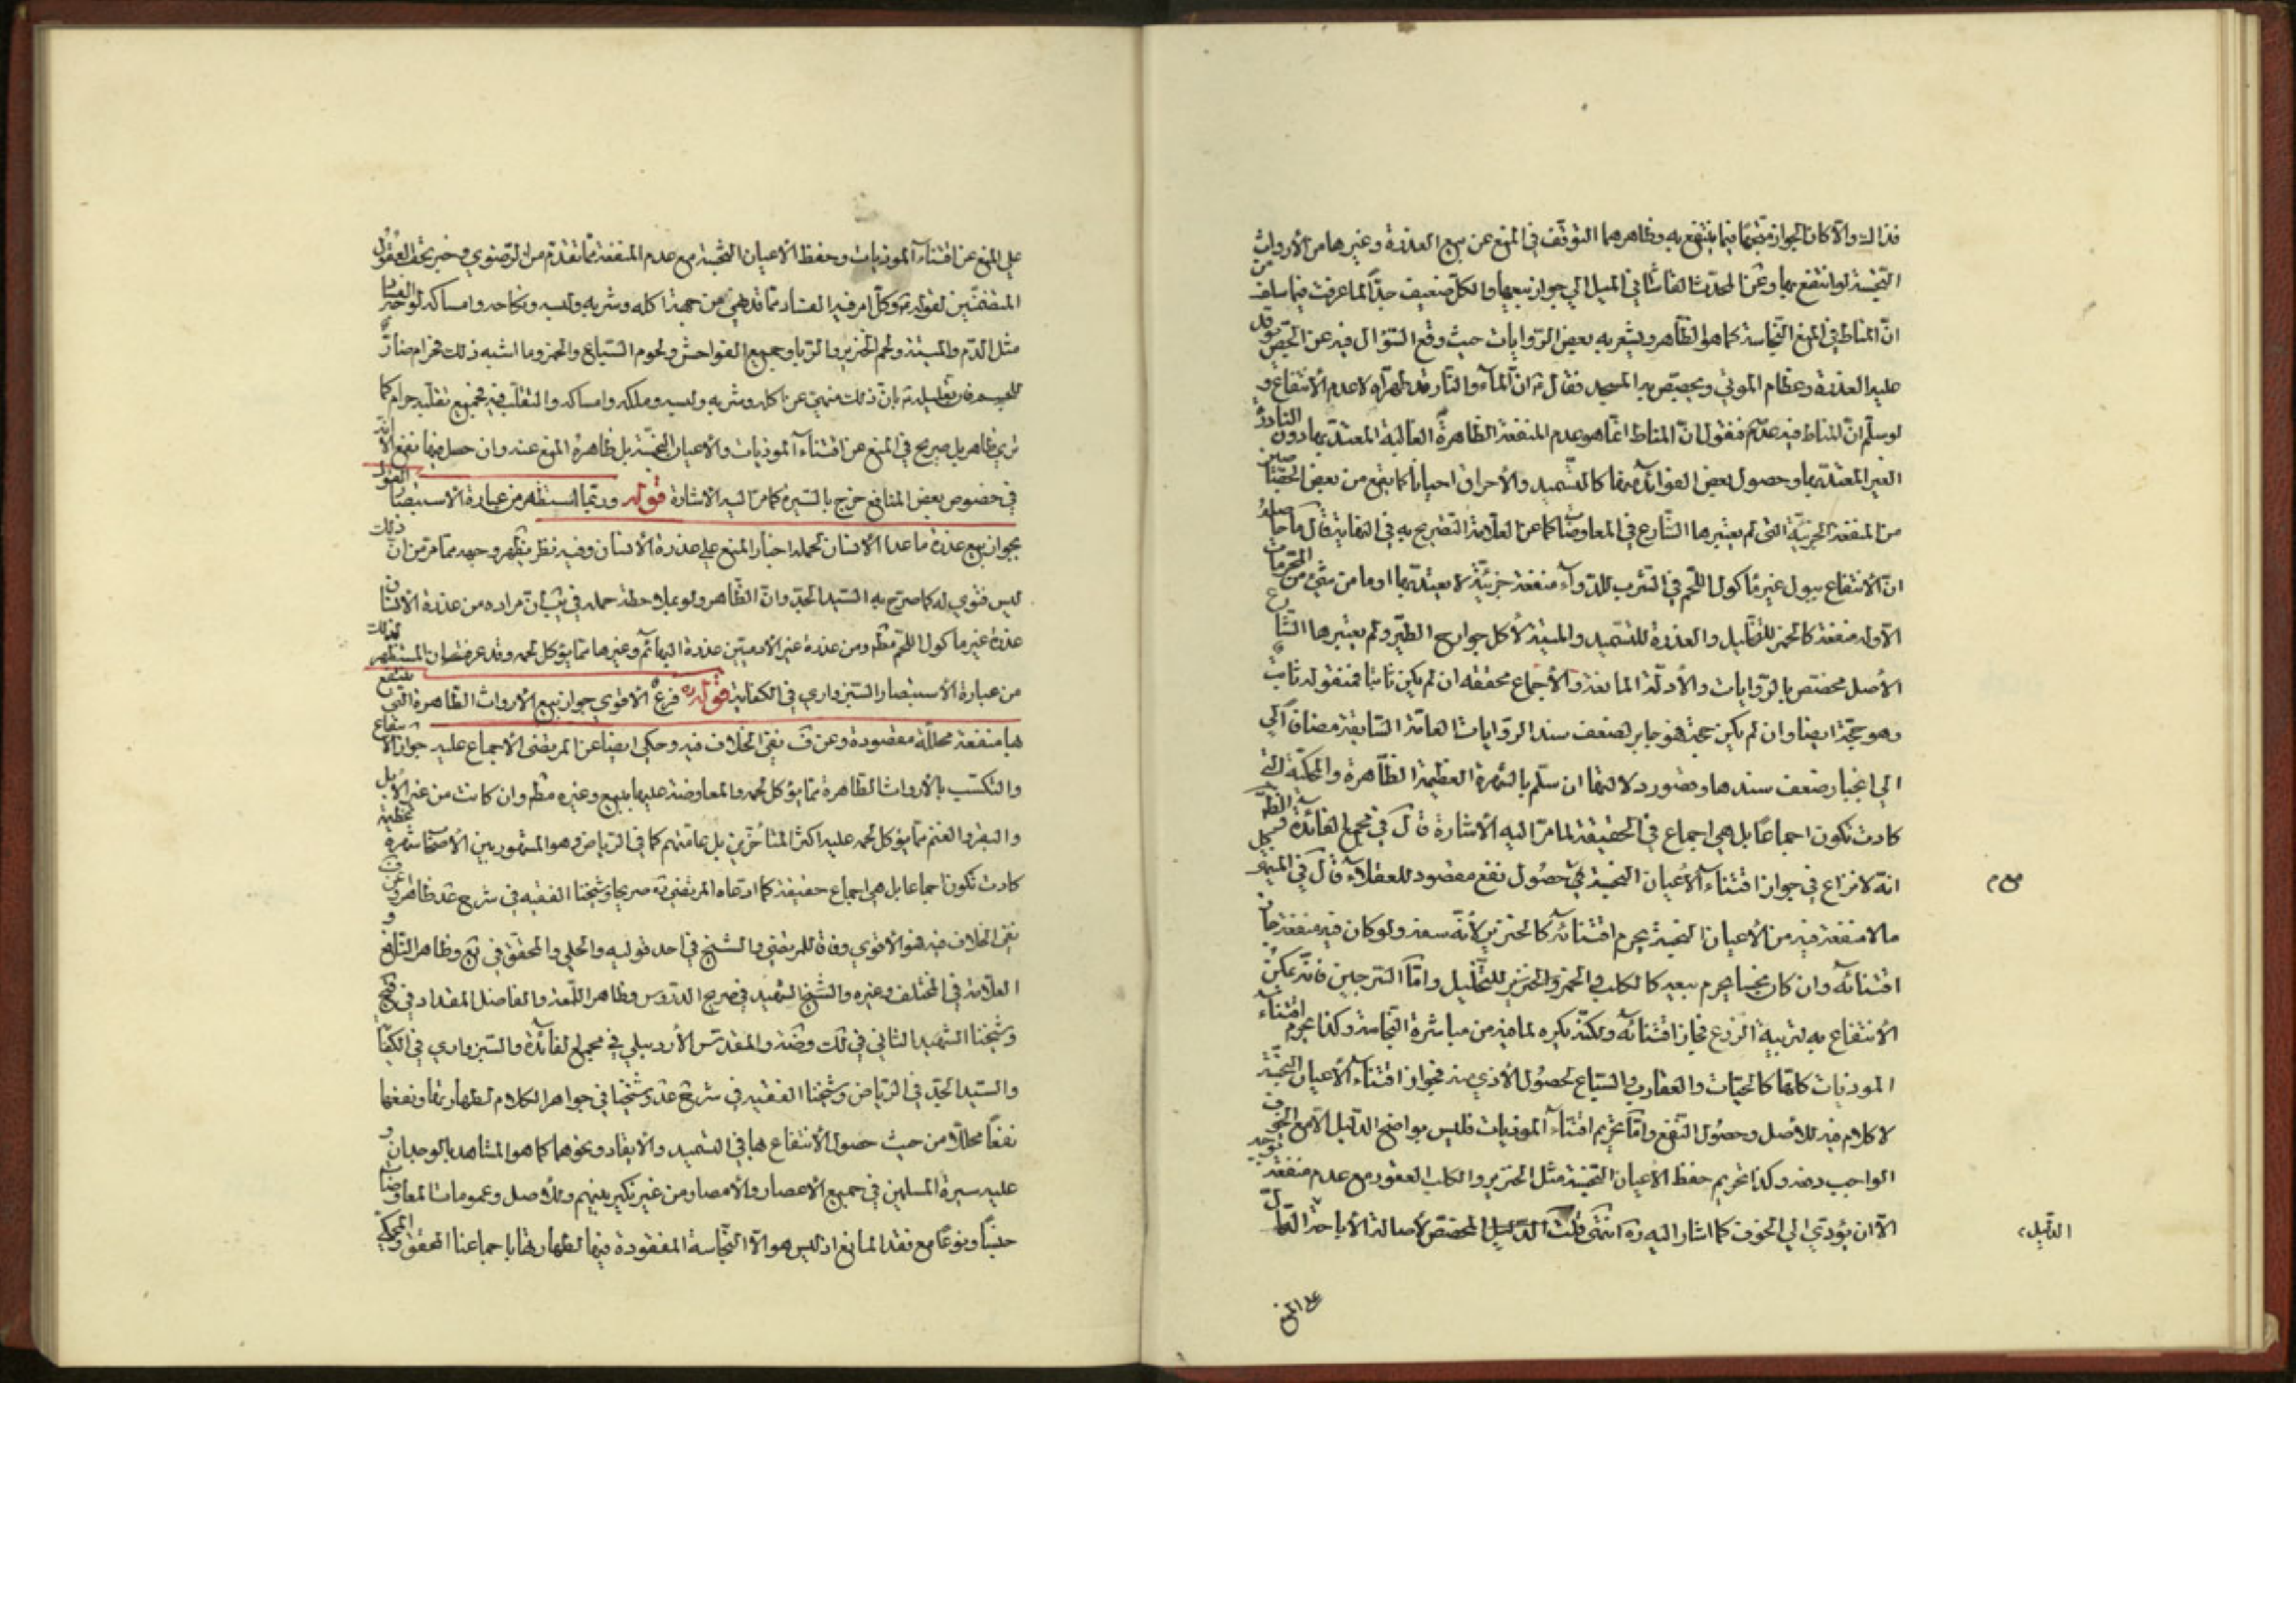 فذاك والا كان الجواز متجها فيما ينتفع به وظاهرهما التوقف في المنع عن بيع العذرة وغيرها من الأرواث
النجسة لو انتفع بها وعن المحدث القاشاني الميل الي جواز بيعها والكل ضعيف جدا لما عرفت فيما سلف من
انّ المناط في المنع النجاسة كما هو الظاهر ويشعر به بعض الروايات حيث وقع السؤال فيه عن الجصّ يوقد
عليه العذرة وعظام الموتي ويجصّص به المسجد فقال ع انّ المآء والنار قد طهراه لا عدم الانتفاع و
لو سلّم انّ المناط فيه عدمه فنقول انّ المناط انما هو عدم المنفعة الظاهرة الغالبة المعتدّ بها دون النادرة
الغير المعتدّ بها وحصول بعض الفوائد منها كالتسميد والأحراق احيانا كما يقع من بعض
من المنفعة الجزئيّة التي لم يعتبرها الشارع في المعاوضات كما عن العلامة التصريح به في النهاية قال ما حاصله
انّ الانتفاع ببول غير مأكول اللحم في الشرب للدوآء منفعة جزئيّة لا يعتدّ بها او ما من شيء من المحرمات
الا وله منفعة كالخمر للتخليل والعذرة للتسميد والميتة لأكل جوارح الطير ولم يعتبرها الشارع
الأصل مختصّ بالروايات والأدلّة المانعة والأجماع محققه ان لم يكن ثابتا فمنقوله ثابت
وهو حجّة ايضا وان لم يكن حجة فهو جابر لضعف سند الروايات العامّة السابقة مضافا
الي انجبار ضعف سندها وقصور دلالتها ان سلّم بالشهرة العظيمة الظاهرة والمحكيّة التي
كادت تكون اجماعا بل هي اجماع في الحقيقة لما مرّ اليه الأشارة قال في مجمع الفائدة
انه لا نزاع في جواز اقتنآء الأعيان النجسة مع حصول نفع مقصود للعقلاء قال في
مع م
ما لا منفعة فيه من الأعيان النجسة يحرم اقتنائه كالخنزير لأنّه سفه ولو كان فيه منفعة جاز
اقتنائه وان كان نجسا يحرم بيعه كالكلب والخمر والخنزير للتخليل وامّا السرجين فانّه يمكن
الأنتفاع به لتربية الزرع فجاز اقتنائه ولكنّه يكره لما فيه من مباشرة النجاسة وكذا يحرم اقتناء
الموذيات كلّها كالحيّات والعقارب والسباع لحصول الأذي منه فجواز اقتنآء الأعيان النجسة
لا كلام فيه للأصل وحصول النفع وامّا تحريم اقتنآء الموذيات فليس بواضح الدليل الا مع الخوف
الواجب دفعه وكذا تحريم حفظ الأعيان النجسة مثل الخنزير والكلب العقور مع عدم منفعة
الا ان يؤدي الي الخوف كما اشار اليه ره انتهى قلت الدليل المخصّص لأصالة الأباحة
الدليل
علي المنع
علي المنع عن اقتنآء الموذيات وحفظ الأعيان النجسة مع عدم المنفعة ما تقدّم من الرضوي وخبر تحف العقول
المتضمّنين لقوله ع وكلّ امر فيه الفساد مما قد نهي من جهة اكله وشربه ولبسه ونكاحه وامساكه لوجه الفساد
مثل الدّم والميتة ولحم الخنزير والربا وجميع الفواحش ولحوم السباع والخمر وما اشبه ذلك فحرام ضارّ
للجسم فان تعليله ع بان ذلك منهيّ عن اكله وشربه ولبسه وملكه وامساكه والتقلّب فيه فجميع تقلّبه حرام كما
تري ظاهر بل صريح في المنع عن اقتنآء الموذيات والأعيان النجسة بل ظاهره المنع عنه وان حصل فيها نفع الا انّه
في خصوص بعض المنافع خرج بالسيرة كما مرّ اليه الاشارة قوله وربما يستظهر من عبارة الاستبصار القول
بجواز بيع عذرة ما عدا الانسان لحمله اخبار المنع علي عذرة الانسان وفيه نظر يظهر وجهه مما مرّ من انّ ذلك
ليس فتوي له كما صرّح به السيد الجدّ وانّ الظاهر ولو بملاحظة حمله في يب انّ مراده من عذرة الانسان
عذرة غير مأكول اللحم مطّ ومن عذرة غير الآدميّين عذرة البهائم وغيرها مما يؤكل لحمه وقد عرفت ان المستظهر لذلك
من عبارة الأستبصار السبزواري في الكفاية قوله ره فرع الاقوي جواز بيع الارواث الطاهرة التي ينتفع
بها منفعة محللّة مقصودة وعن ف نفي الخلاف فيه وحكي ايضا عن المرتضي الأجماع عليه جواز الانتفاع
والتكسّب بالأرواث الطاهرة مما يؤكل لحمه والمعاوضة عليها ببيع وغيره مطّ وان كانت من غير الأبل
والبقر والغنم مما يؤكل لحمه عليه اكثر المتأخرين بل عامّتهم كما في الرياض وهو المشهور بين الأصحاب شهرة عظيمة
كادت تكون اجماعا بل هي اجماع حقيقة كما ادعاه المرتضي ره صريحا وشيخنا الفقيه في شرح عد ظاهرا وعن ف
نفي الخلاف فيه هو الأقوي وفاقا للمرتضي والشيخ في احد قوليه والحلي والمحقق في يع وظاهر النافع و
العلّامة في المختلف وغيره والشيخ الشهيد في صريح الدروس وظاهر اللمعة والفاضل المقداد في
وشيخنا الشهيد الثاني في لك وضه والمقدس الأردبيلي في مجمع الفائدة والسبزواري في الكفاية
والسيد الجدّ في الرياض وشيخنا الفقيه في شرح عد وشيخنا في جواهر الكلام لطهارتها ونفعها
نفعا محللا من حيث حصول الأنتفاع بها في التسميد والأيقاد ونحوهما كما هو المشاهد بالوجدان و
عليه سيرة المسلمين في جميع الأعصار والأمصار من غير نكير بينهم وللأصل وعمومات المعاوضات
جنسا ونوعا مع فقد المانع اذ ليس هو الا النجاسة المفقودة فيها لطهارتها باجماعنا المحقق والمحكي